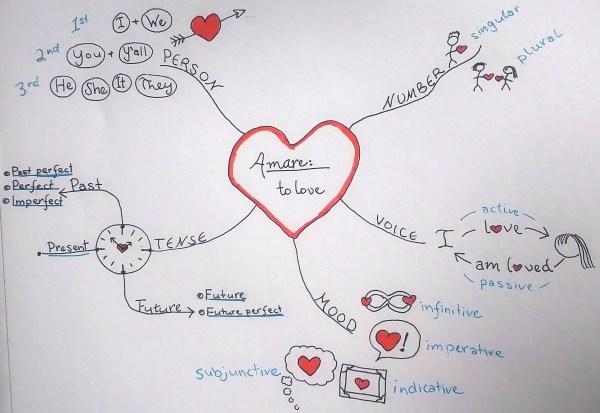 1st I + We
2nd You + Y'all
3rd He She It They
PERSON
NUMBER
singular
plural
Amare:
to love
TENSE
Past
Past perfect
Perfect
Imperfect
Present
Future
Future
Future perfect
VOICE
active
I love
am loved
passive
MOOD
infinitive
!
imperative
indicative
subjunctive